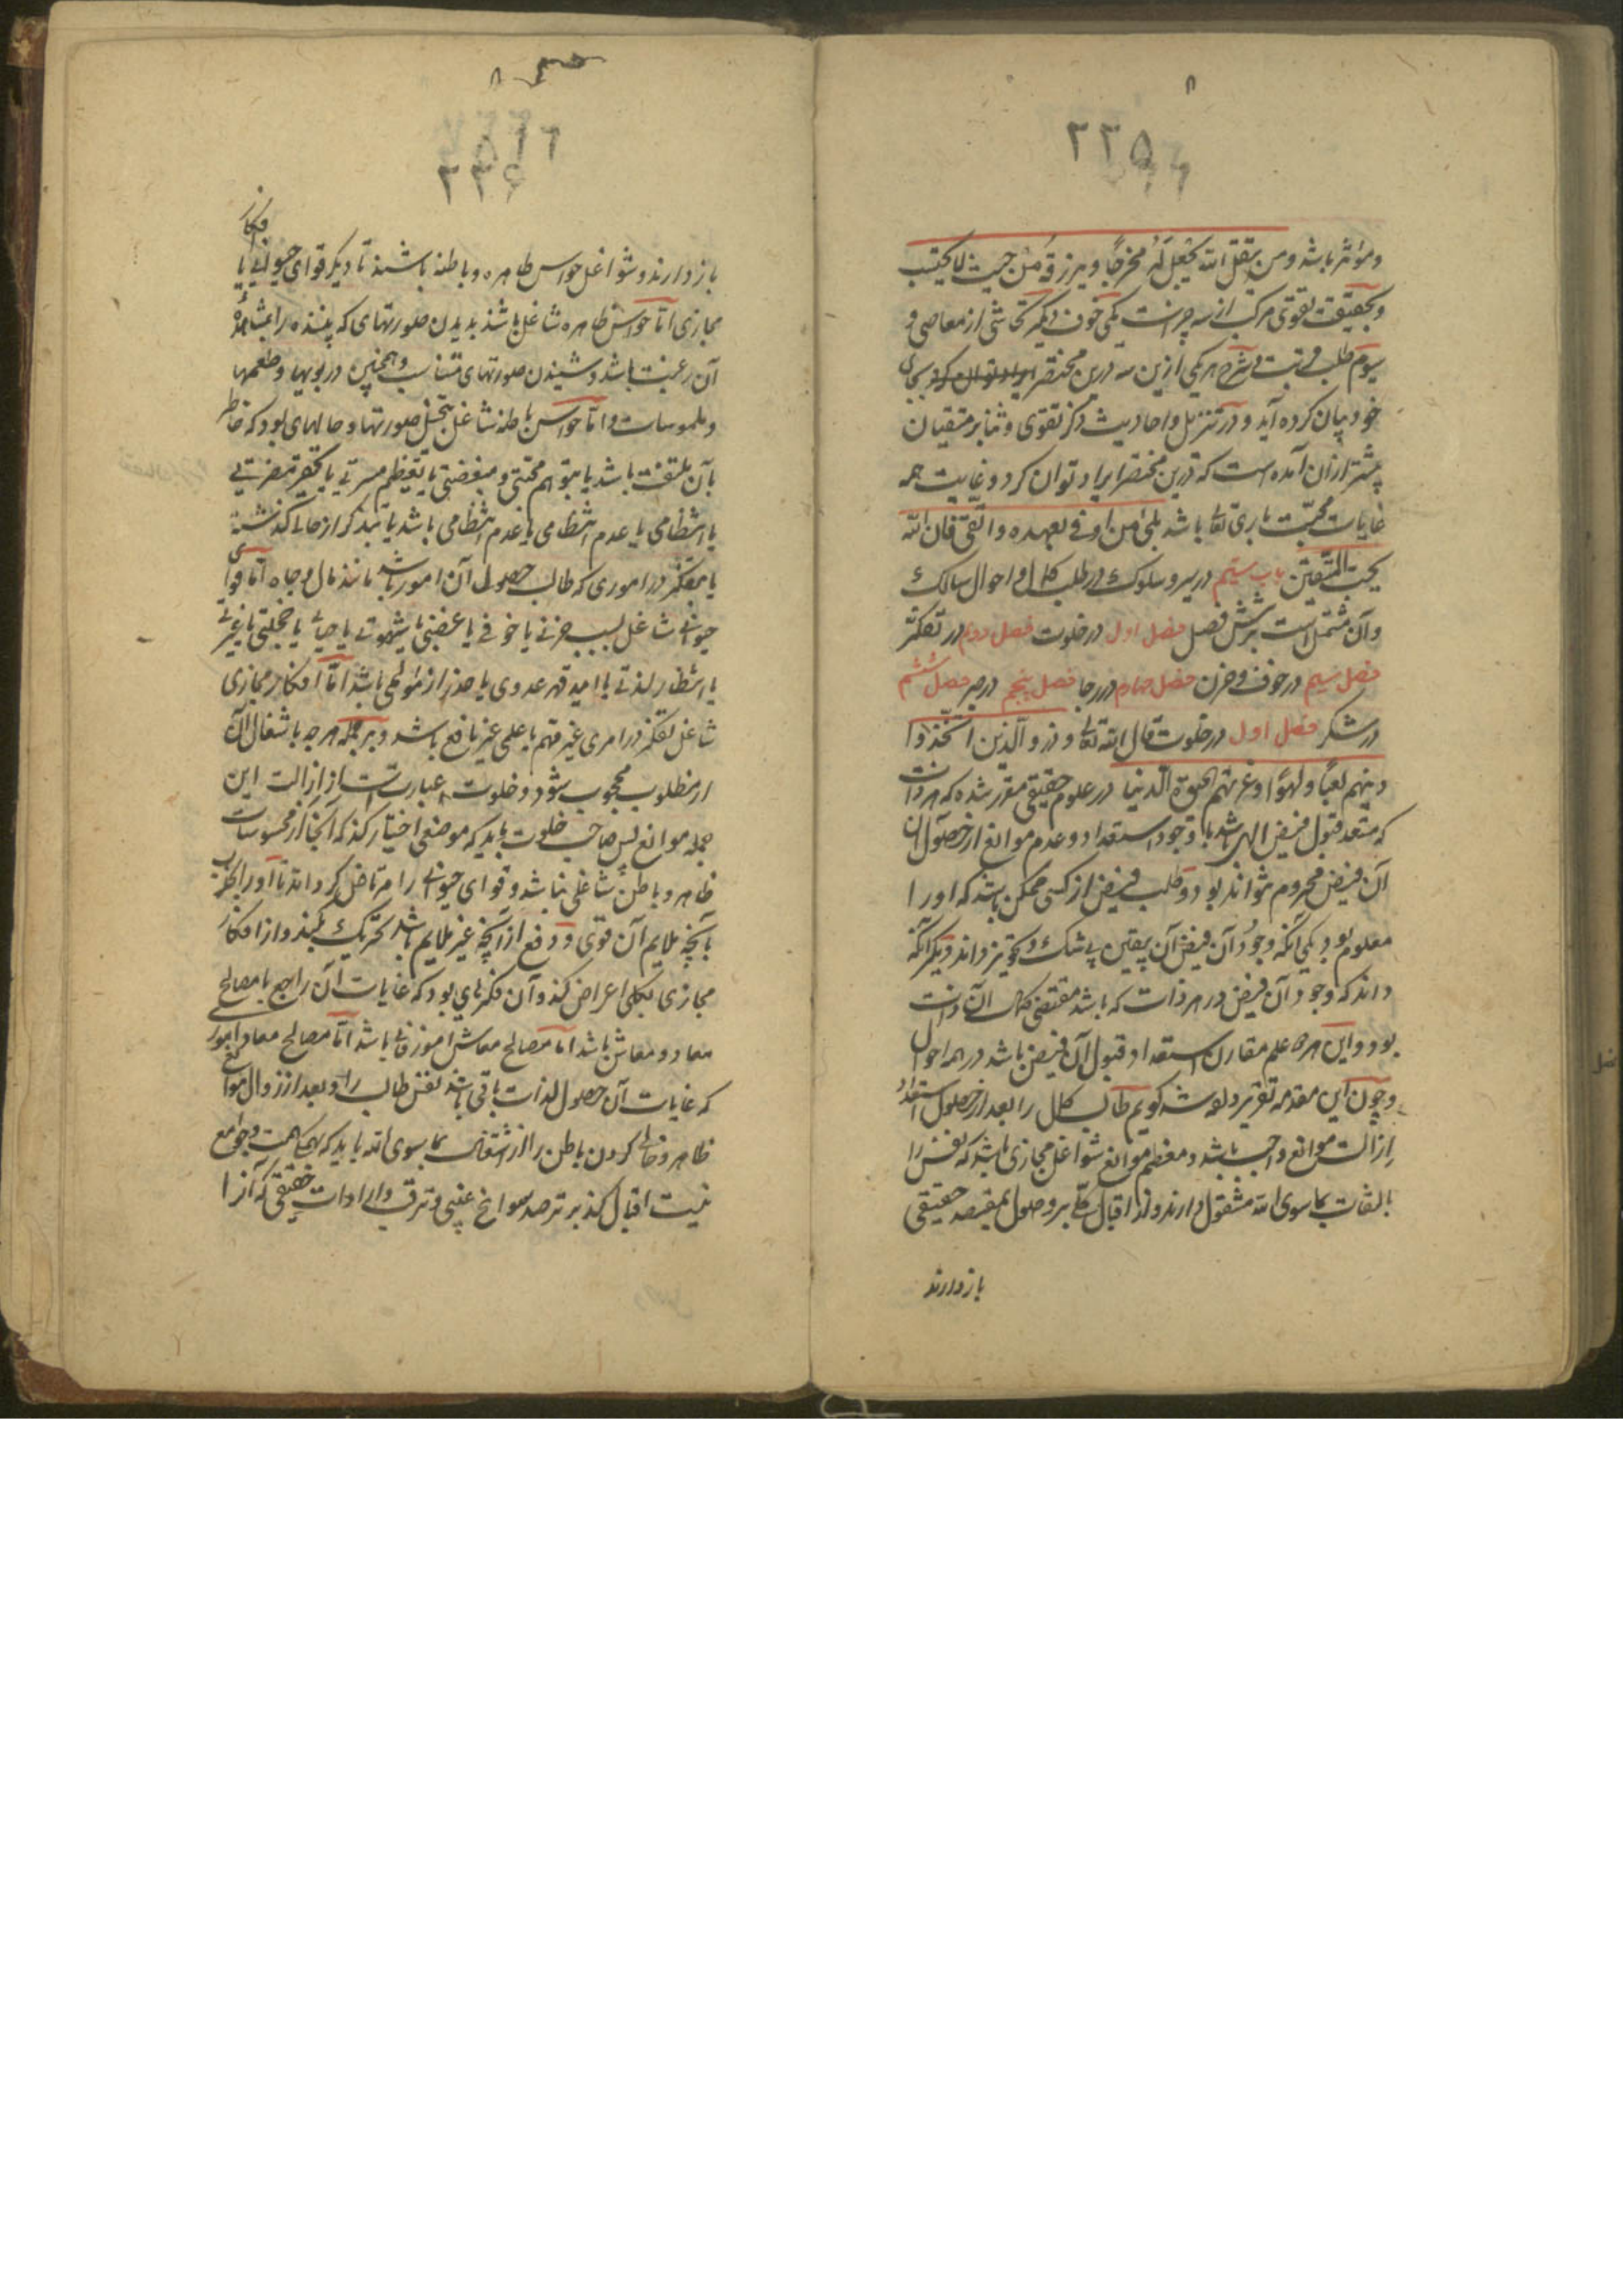 ۸
۲۲۵
و مؤثر باشد ومن یتق الله یجعل له مخرجا ویرزقه من حیث لا یحتسب
و بحقیقت تقوی مرکب از سه چیزست یکی خوف دیگر تحاشی از معاصی و
سیوم طلب قربت و شرح هر یکی ازین سه درین مختصر بجای
خود بیان کرده آید و در تنزیل و احادیث ذکر تقوی و ثنا بر متقیان
بیشتر از آن آمده است که درین مختصر ایراد توان کرد و غایت همه
غایات محبت باری تعالی باشد بلی من اوفی بعهده واتقی فان الله
یحب المتقین باب سیم در سیر و سلوک در طلب کمال و احوال سالک
و آن مشتمل است بر شش فصل فصل اول در خلوت فصل دوم در تفکر
فصل سیم در خوف و حزن فصل چهارم در رجا فصل پنجم در صبر فصل ششم
در شکر فصل اول در خلوت قال الله تعالی وذر الذین اتخذوا
دینهم لعبا ولهوا وغرتهم الحیوة الدنیا در علوم حقیقی مقرر شده که هر ذات
که مستعد قبول فیض الهی باشد با وجود استعداد و عدم موانع از حصول آن
آن فیض محروم نتواند بود و طلب فیض از کسی ممکن باشد که او را
معلوم بود یکی آنکه وجود آن فیض آن بیقین بی شک و تجویز داند دیگر آنکه
داند که وجود آن فیض در هر ذات که باشد مقتضی کمال آن ذات
بود و این هر دو علم مقارن استعداد قبول آن فیض باشد در همه احوال
و چون این مقدمه تقریر داده شد گویم طالب کمال را بعد از حصول استعداد
ازالت موانع واجب باشد و معظم موانع شواغل مجازی باشد که نفس را
بالتفات بما سوی الله مشغول دارند و از اقبال کلی بر وصول بمقصد حقیقی
باز دارند
۸
۵۱۶
۲۲۶
باز دارند و شواغل حواس ظاهره و باطنه باشند تا دیگر قوای حیوانی یا
افکار
مجازی اما حواس ظاهره شاغل باشد بدیدن صورتهای که بیننده را بمشاهده
آن رغبت باشد و شنیدن صورتهای متناسب و همچنین در بویها و طعمها
و ملموسات و اما حواس باطنه شاغل بتخیل صورتها و حالهای بود که خاطر
بآن ملتفت باشد یا بتوهم محبتی و مبغضتی یا تعظیم مسرتی یا تحقیر مضرتی
یا انتظامی یا عدم انتظامی یا عدم انتظامی باشد یا بتذکر از حالی گذشته
یا بتفکر در اموری که طالب حصول آن امور باشد مانند مال و جاه اما قوای
حیوانی شاغل بسبب حزنی یا خوفی یا غضبی یا شهوتی یا حیائی یا خجلتی یا غیرتی
یا انتظار لذتی یا امید قهر عدوی یا حذر از مؤلمی باشد اما افکار مجازی
شاغل تفکر در امری غیر مهم یا علمی غیر نافع باشد و بر جمله هر چه باشتغال آن
از مطلوب محجوب شود و خلوت عبارت است از ازالت این
جمله موانع پس صاحب خلوت باید که موضعی اختیار کند که آنجا از محسوسات
ظاهر و باطن شاغلی نباشد و قوای حیوانی را مرتاض گرداند تا او را بجذب
بآنچه ملایم آن قوی و دفع از آنچه غیر ملایم باشد تحریک نکند و از افکار
مجازی بکلی اعراض کند و آن فکرهایی بود که غایات آن راجع با مصالح
معاد و معاش باشد اما مصالح معاش امور فانی باشد اما مصالح معاد امور
که غایات آن حصول لذات باقی باشد نفس طالب را و بعد از زوال موانع
ظاهر و خالی کردن باطن را از اشتغال بما سوی الله باید که بهمگی همت و جوامع
نیت اقبال کند بر ترصد سوانح غیبی و ترقب واردات حقیقی که آنرا